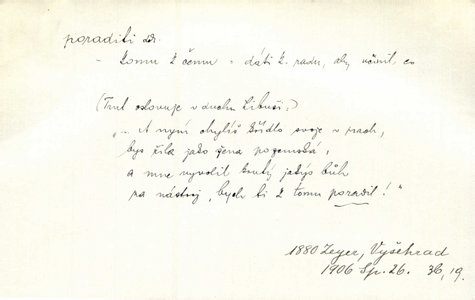 poraditi dk.
- komu k čemu = dáti k. radu, aby učinil, co
(Trut oslovuje v duchu Libuši:)
"... A nyní chylíš křídlo svoje v prach,
bys žila jako žena pozemská,
a mne vyvolil krutý jakýs bůh
za nástroj, bych ti k tomu poradil!"
1880 Zeyer, Vyšehrad
1906 Sp. 26. 36, 19.